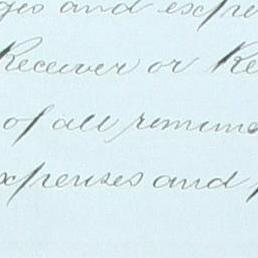 ges and expe
Receiver or Re
of all remune
xpenses and